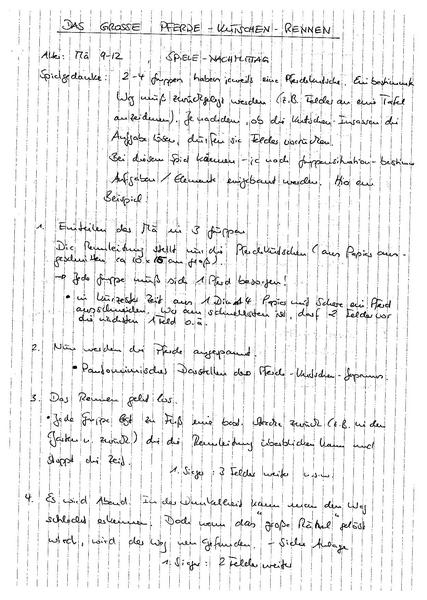 DAS GROSSE PFERDE-KUTSCHEN-RENNEN
Alter: Mä 9-12, SPIELE-NACHMITTAG
Spielgedanke: 2-4 Gruppen haben jeweils eine Pferdekutsche. Ein bestimmter
Weg muß zurückgelegt werden (z.B. Felder an eine Tafel
anzeichnen). Je nachdem, ob die Kutschen-Insassen die
Aufgabe lösen, dürfen sie Felder vorrücken.
Bei diesem Spiel können - je nach Gruppensituation - bestimmte
Aufgaben / Elemente eingebaut werden. Hier ein
Beispiel:
1. Einteilen der Mä in 3 Gruppen
Die Rennleitung stellt nur die Pferdekutschen (aus Papier aus-
geschnitten ca 10 x 15 cm groß).
→ Jede Gruppe muß sich 1 Pferd besorgen!
• in kürzester Zeit aus 1 Din A4 Papier mit Schere ein Pferd
ausschneiden. Wer am schnellsten ist, darf 2 Felder vor
die nächsten 1 Feld o.ä.
2. Nun werden die Pferde angespannt.
• Pantomimisches Darstellen des Pferde-Kutschen-Gespannes.
3. Das Rennen geht los.
• Jede Gruppe legt zu Fuß eine best. Strecke zurück (z.B. in den
Garten u. zurück) die die Rennleitung überblicken kann und
stoppt die Zeit.
1. Sieger: 3 Felder weiter u.s.w.
4. Es wird Abend. In der Dunkelheit kann man den Weg
schlecht erkennen. Doch wenn das große Rätsel gelöst
wird, wird der Weg neu gefunden. - Siehe Anlage
1. Sieger: 2 Felder weiter